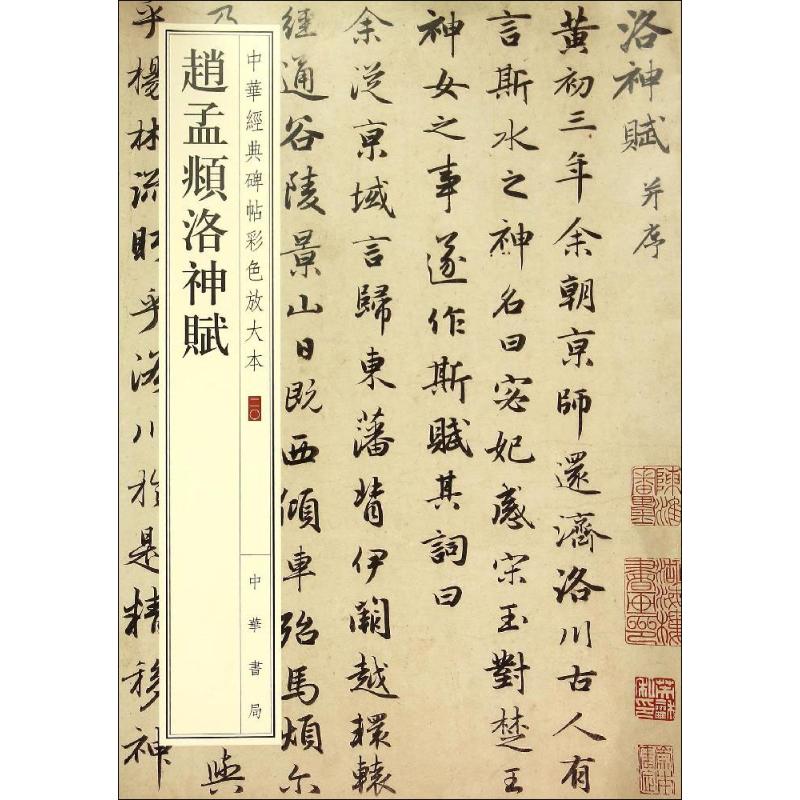 洛神賦 并序
黃初三年余朝亰師還濟洛川古人有
言斯水之神名曰宓妃感宋玉對楚王
神女之事遂作斯賦其詞曰
余從亰域言歸東藩背伊闕越轘轅
經通谷陵景山日既西傾車殆馬煩尔
乃
與
乎楊林流眄乎洛川於是精移神
中華經典碑帖彩色放大本 二〇
中華書局
趙孟頫洛神賦